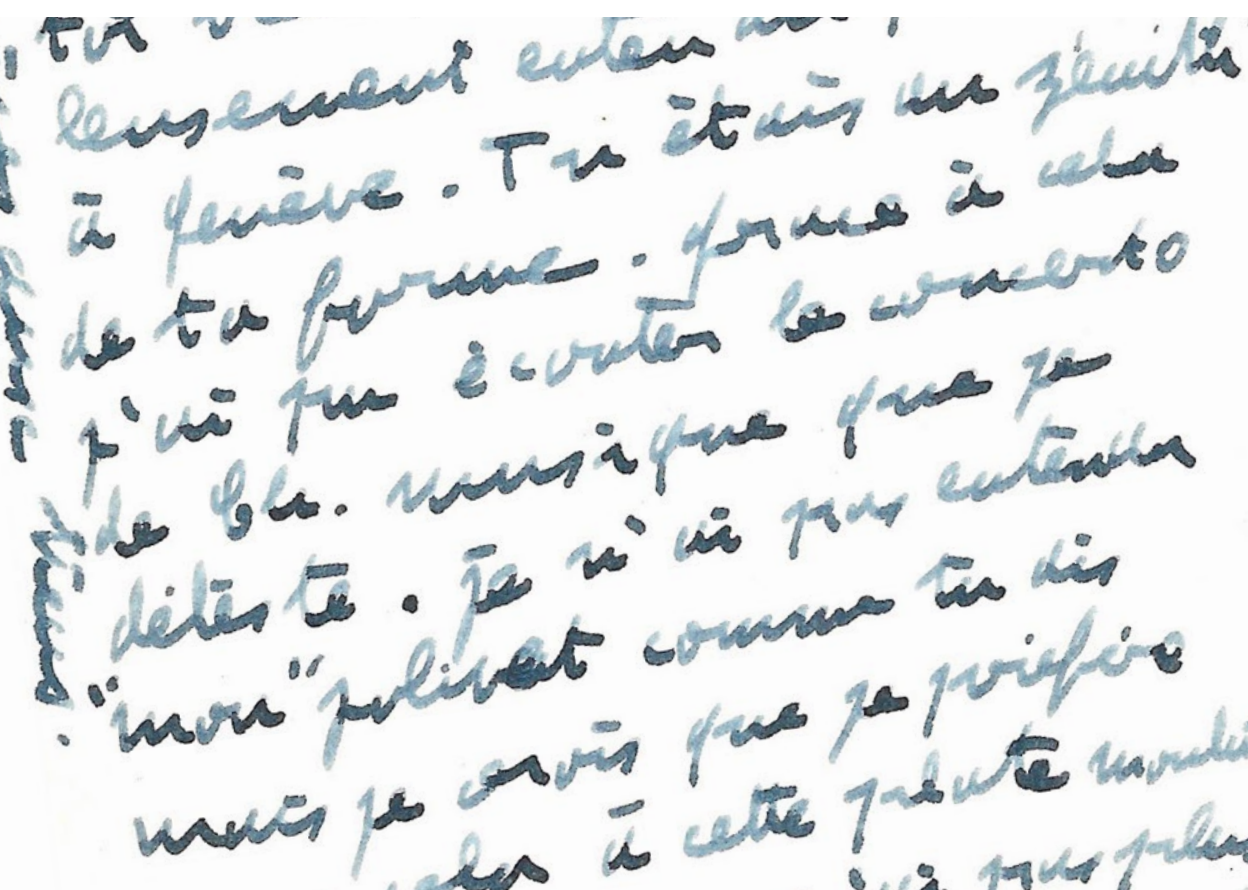 leusement enten
à Genève. Tu étais au zénith
de ta forme. grace à cela
j'ai pu écouter le concerto
de Ch. musique que je
déteste. Je n'ai pas entendu
"mon" polivet comme tu dis
mais je crois que je préfère
cela à cette plante
pas plus